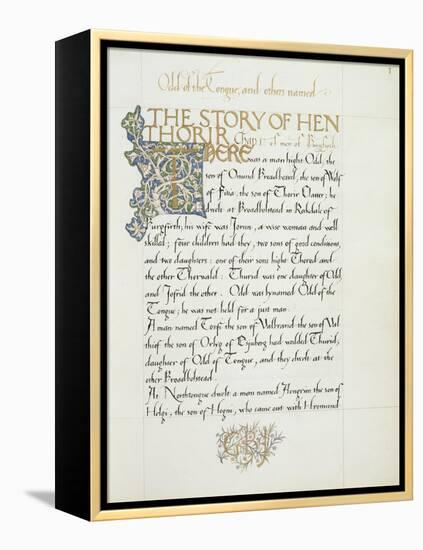 1
Odd of the Tongue, and others named
THE STORY OF HEN
THORIR. Chap. I. Of men of Burgfirth
THERE was a man hight Odd, the
son of Onund Broadbeard, the son of Wolf
of Fitia, the son of Thorir Clamer; he
dwelt at Broadbolstead in Rekdale of
Burgfirth; his wife was Jorun, a wise woman and well
skilled; four children had they, two sons of good conditions,
and two daughters: one of their sons hight Thorod and
the other Thorwald: Thurid was one daughter of Odd,
and Jofrid the other. Odd was bynamed Odd of the
Tongue; he was not held for a just man.
A man named Torfi the son of Valbrand the son of Val
thiof the son of Orlyg of Esjuberg had wedded Thurid,
daughter of Odd of Tongue, and they dwelt at the
other Broadbolstead.
At Northtongue dwelt a man named Arngrim the son of
Helgi, the son of Hogni, who came out with Hromund